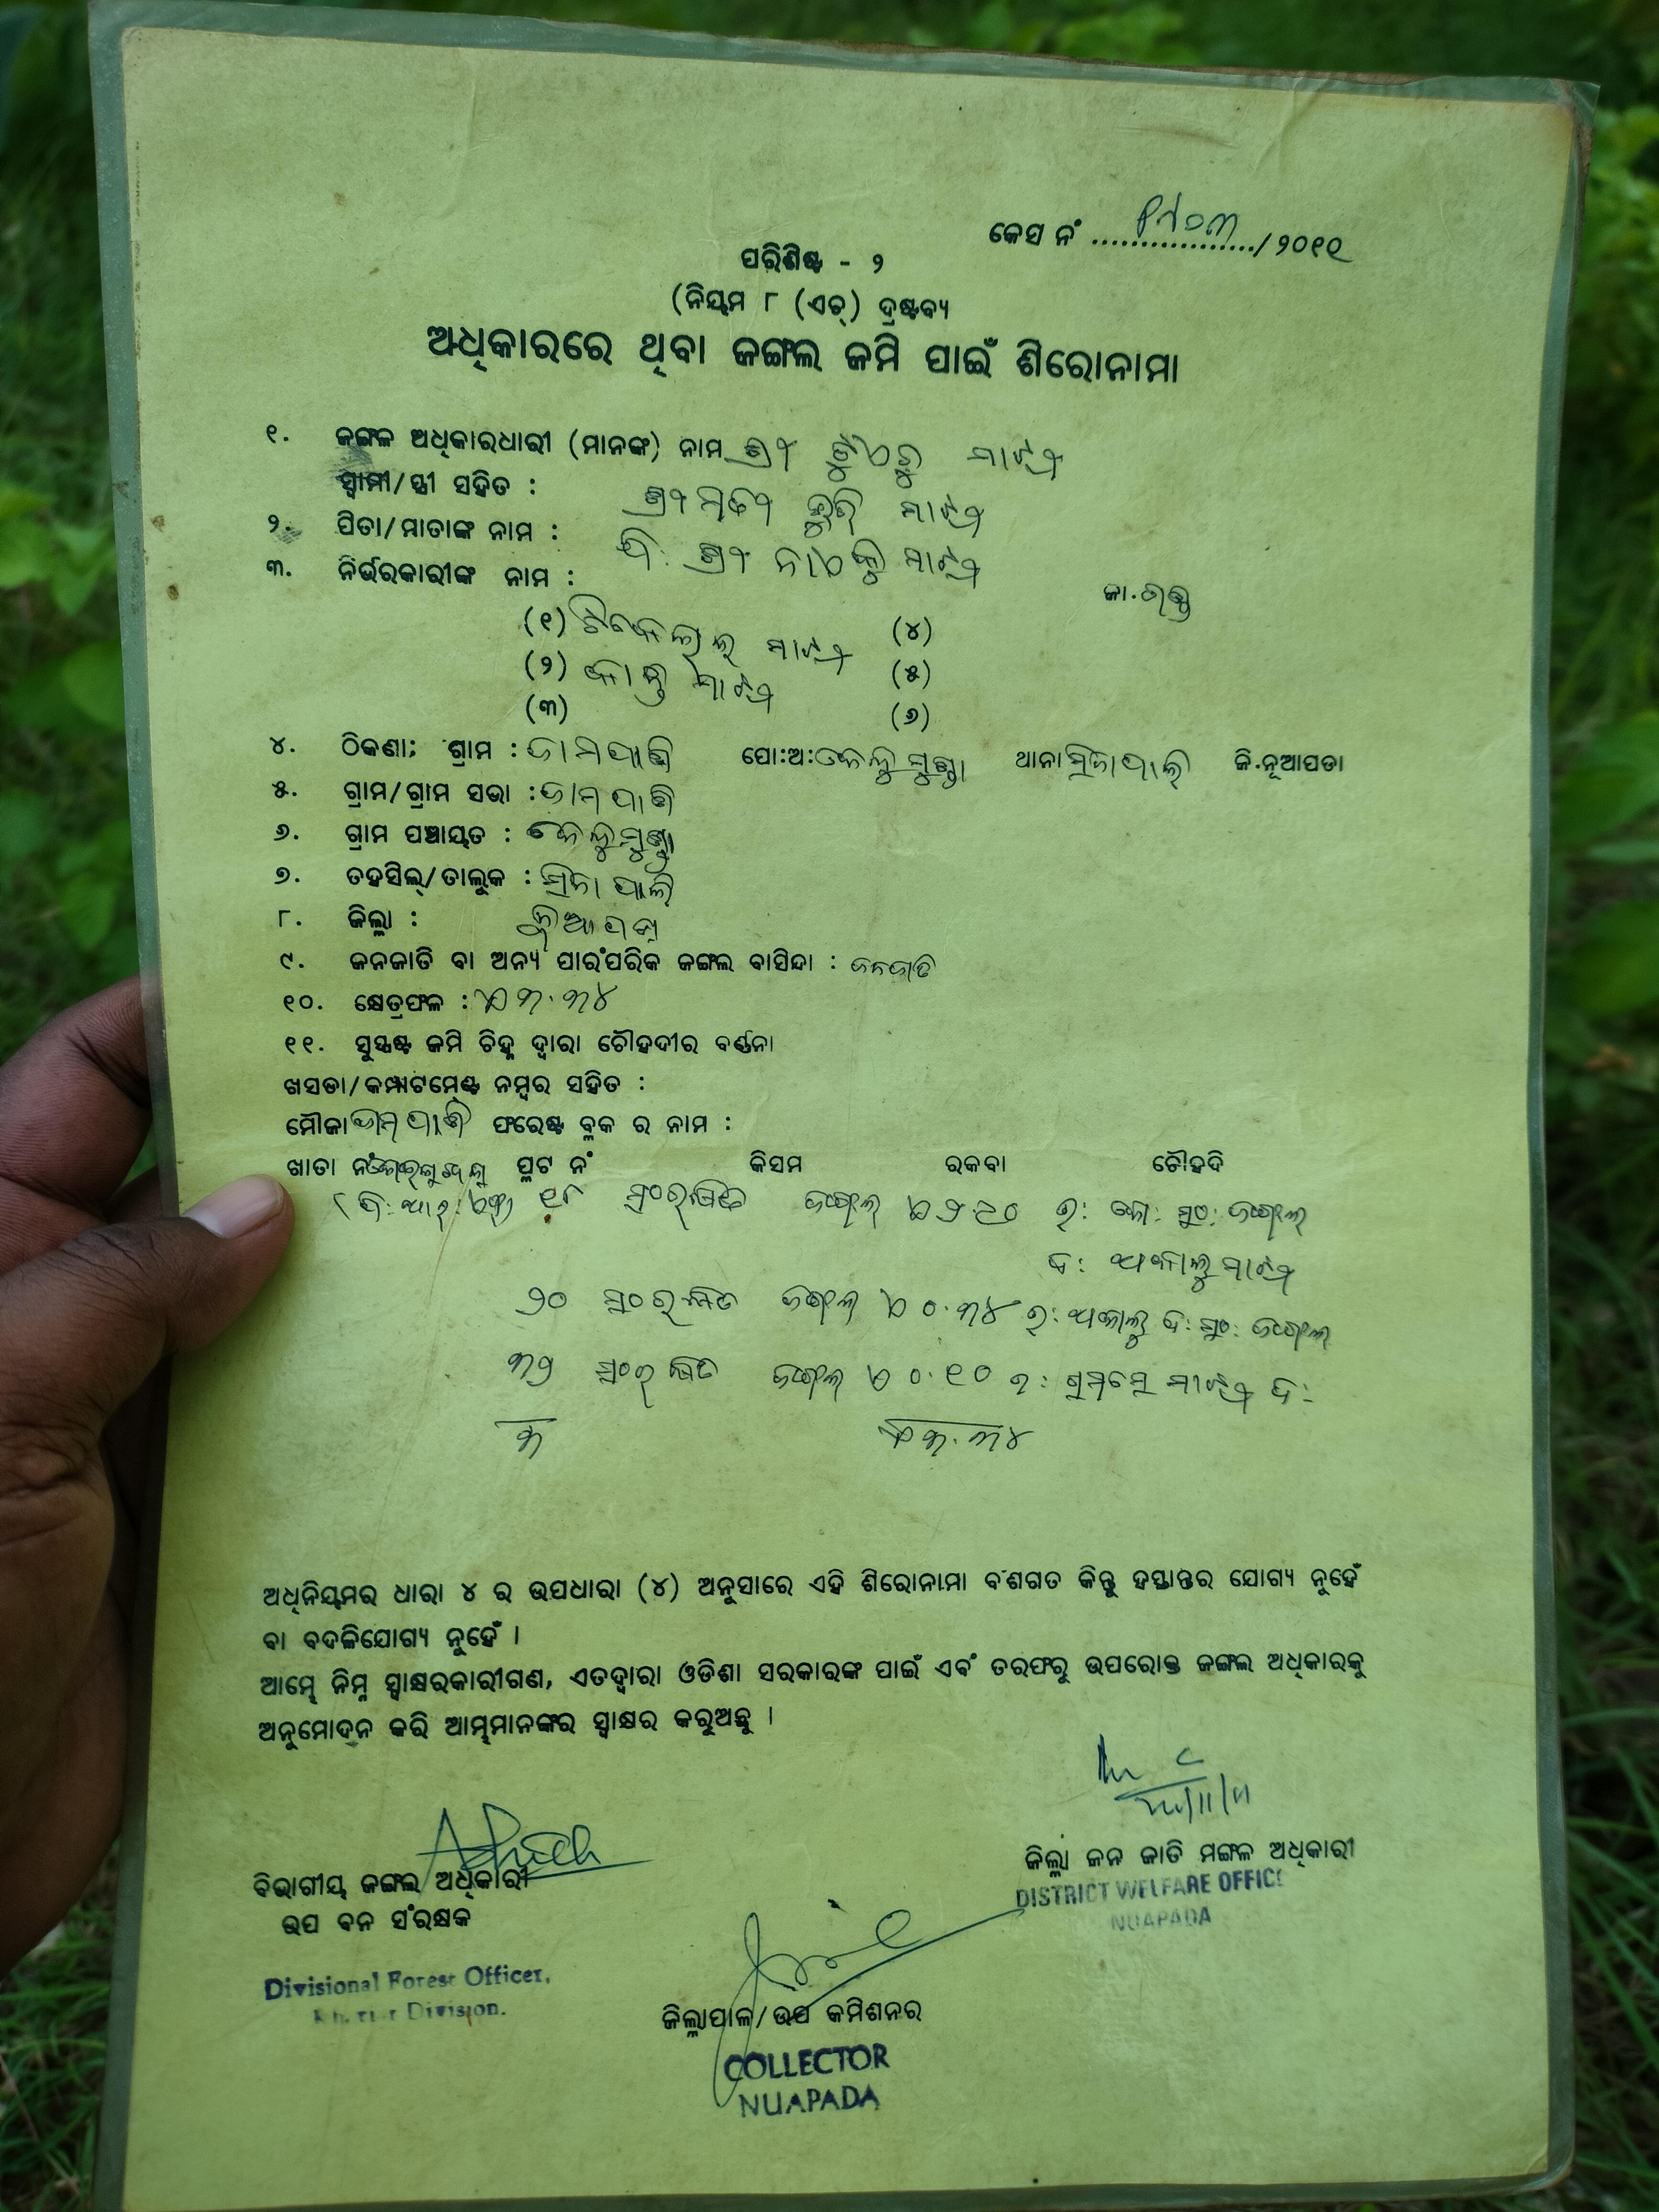 କେସ ନଂ ................./ ୨୦୧୧
ପରିଶିଷ୍ଟ - ୨
(ନିୟମ ୮ (ଏଚ୍) ଦ୍ରଷ୍ଟବ୍ୟ
ଅଧିକାରରେ ଥିବା ଜଙ୍ଗଲ ଜମି ପାଇଁ ଶିରୋନାମା
୧. ଜଙ୍ଗଳ ଅଧିକାରଧାରୀ (ମାନଙ୍କ) ନାମ ଶ୍ରୀ ମାଝୀ
ସ୍ୱାମୀ/ସ୍ତ୍ରୀ ସହିତ : ଶ୍ରୀମତୀ ମାଝୀ
୨. ପିତା/ମାତାଙ୍କ ନାମ : ପି: ଶ୍ରୀ ମାଝୀ
୩. ନିର୍ଭରକାରୀଙ୍କ ନାମ : ଜା.ଗଣ୍ଡ
(୧) ମାଝୀ (୪)
(୨) ମାଝୀ (୫)
(୩) (୬)
୪. ଠିକଣା: ଗ୍ରାମ : ଜାମପାନି ପୋ:ଅ: ଥାନା ସିନାପାଲି ଜି.ନୂଆପଡା
୫. ଗ୍ରାମ/ଗ୍ରାମ ସଭା : ଜାମପାନି
୬. ଗ୍ରାମ ପଞ୍ଚାୟତ :
୭. ତହସିଲ୍/ତାଲୁକ : ସିନାପାଲି
୮. ଜିଲ୍ଲା : ନୂଆପଡା
୯. ଜନଜାତି ବା ଅନ୍ୟ ପାରଂପରିକ ଜଙ୍ଗଲ ବାସିନ୍ଦା : ଜନଜାତି
୧୦. କ୍ଷେତ୍ରଫଳ : ଏ ୩.୩୪
୧୧. ସୁସ୍ପଷ୍ଟ ଜମି ଚିହ୍ନ ଦ୍ୱାରା ଚୌହଦୀର ବର୍ଣ୍ଣନା
ଖସଡା/କମ୍ପାଟମେଣ୍ଟ ନମ୍ବର ସହିତ :
ମୌଜା ଜାମପାନି ଫରେଷ୍ଟ ବ୍ଲକ ର ନାମ :
ଖାତା ନଂ ପ୍ଲଟ ନଂ କିସମ ରକବା ଚୌହଦି
୧୮ ସଂରକ୍ଷିତ ଜଙ୍ଗଲ ଏ ୨.୯୦ ଉ: ସଂ: ଜଙ୍ଗଲ
ଦ: ଅକାଲୁ ମାଝୀ
୨୦ ସଂରକ୍ଷିତ ଜଙ୍ଗଲ ଏ ୦.୩୪ ଉ: ଅକାଲୁ ଦ: ସଂ: ଜଙ୍ଗଲ
୩୨ ସଂରକ୍ଷିତ ଜଙ୍ଗଲ ଏ ୦.୧୦ ଉ: ମାଝୀ ଦ:
୩ ଏ ୩.୩୪
ଅଧିନିୟମର ଧାରା ୪ ର ଉପଧାରା (୪) ଅନୁସାରେ ଏହି ଶିରୋନାମା ବଂଶଗତ କିନ୍ତୁ ହସ୍ତାନ୍ତର ଯୋଗ୍ୟ ନୁହେଁ
ବା ବଦଳିଯୋଗ୍ୟ ନୁହେଁ ।
ଆମ୍ଭେ ନିମ୍ନ ସ୍ୱାକ୍ଷରକାରୀଗଣ, ଏତଦ୍ୱାରା ଓଡିଶା ସରକାରଙ୍କ ପାଇଁ ଏବଂ ତରଫରୁ ଉପରୋକ୍ତ ଜଙ୍ଗଲ ଅଧିକାରକୁ
ଅନୁମୋଦନ କରି ଆମ୍ଭମାନଙ୍କର ସ୍ୱାକ୍ଷର କରୁଅଛୁ ।
ଜିଲ୍ଲା ଜନ ଜାତି ମଙ୍ଗଳ ଅଧିକାରୀ
DISTRICT WELFARE OFFICE
NUAPADA
ବିଭାଗୀୟ ଜଙ୍ଗଲ ଅଧିକାରୀ
ଉପ ବନ ସଂରକ୍ଷକ
Divisional Forest Officer,
Khariar Division.
ଜିଲ୍ଲାପାଳ/ଉପ କମିଶନର
COLLECTOR
NUAPADA